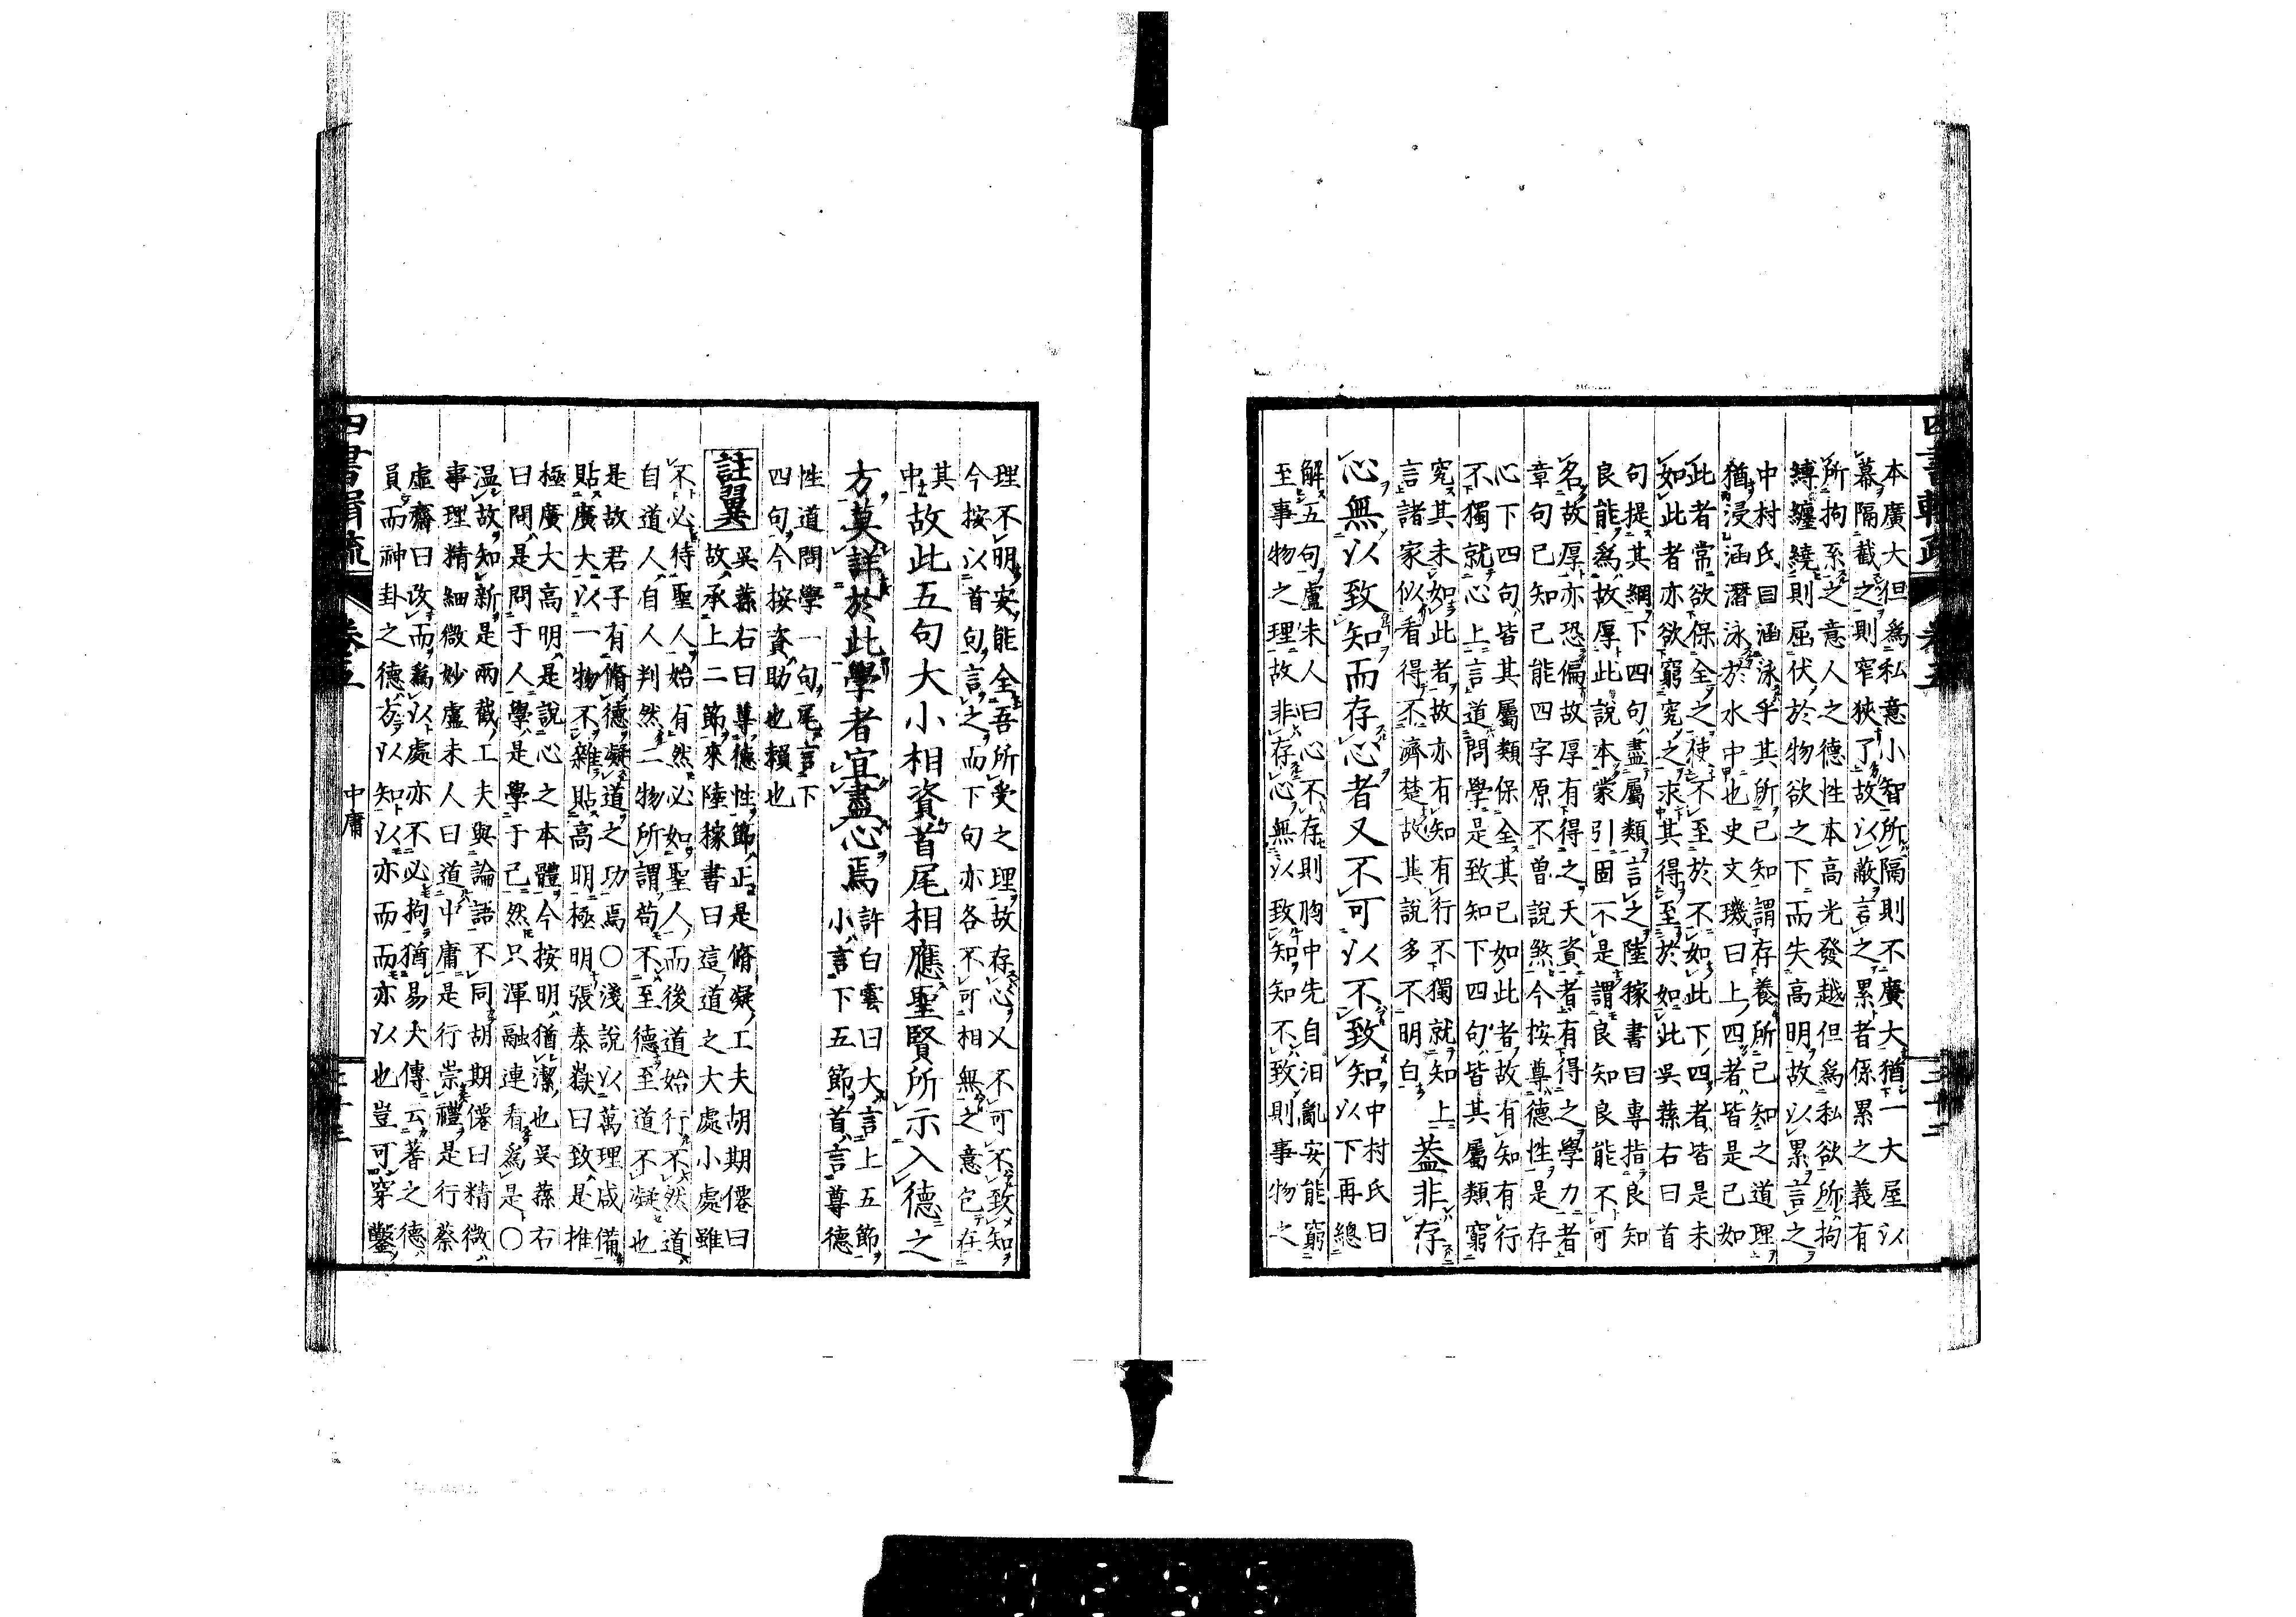 本廣大但爲私意小智所隔則不廣大猶一大屋以
幕隔截之則窄狹了故以蔽言之累者係累之義有
所拘系之意人之德性本高光發越但爲私欲所拘
縛纏繞則屈伏於物欲之下而失高明故以累言之
中村氏曰涵泳乎其所已知謂存養所已知之道理
猶浸涵潛泳於水中也史文璣曰上四者皆是已如
此者常欲保全之使不至於不如此下四者皆是未
如此者亦欲窮究之求其得至於如此吳蓀右曰首
句提其綱下四句盡屬類言之陸稼書曰專指良知
良能爲故厚此說本蒙引固不是謂良知良能不可
名故厚亦恐偏故厚有得之天資者有得之學力者
章句已知已能四字原不曾說煞今按尊德性是存
心下四句皆其屬類保全其已如此者故有知有行
不獨就心上言道問學是致知下四句皆其屬類窮
究其未如此者故亦有知有行不獨就知上
言諸家似看得不濟楚故其說多不明白
蓋非存
心無以致知而存心者又不可以不致知
中村氏曰
以下再總
解五句盧未人曰心不存則胸中先自汨亂安能窮
至事物之理故非存心無以致知知不致則事物之
理不明安能全吾所受之理故存心又不可不致知
今按以首句言之而下句亦各不可相無之意包在
其
中
故此五句大小相資首尾相應聖賢所示入德之
方莫詳於此學者宜盡心焉
許白雲曰大言上五節
小言下五節首言尊德
性道問學一句尾言下
四句今按資助也賴也
註翼
吳蓀右曰尊德性節正是脩凝工夫胡期僊曰
故承上二節來陸稼書曰這道之大處小處雖
不必待聖人始有然必如聖人而後道始行不然道
自道人自人判然二物所謂苟不至德至道不凝也
是故君子有脩德凝道之功焉○淺說以萬理咸備
貼廣大以一物不雜貼高明極明張泰嶽曰致是推
極廣大高明是說心之本體今按明猶潔也吳蓀右
曰問是問于人學是學于己然只渾融連看爲是○
温故知新是兩截工夫與論語不同胡期僊曰精微
事理精細微妙盧未人曰道中庸是行崇禮是行蔡
虛齋曰改而爲以處亦不必拘猶易大傳云蓍之德
員而神卦之德方以知以亦而而亦以也豈可穿鑿
中庸